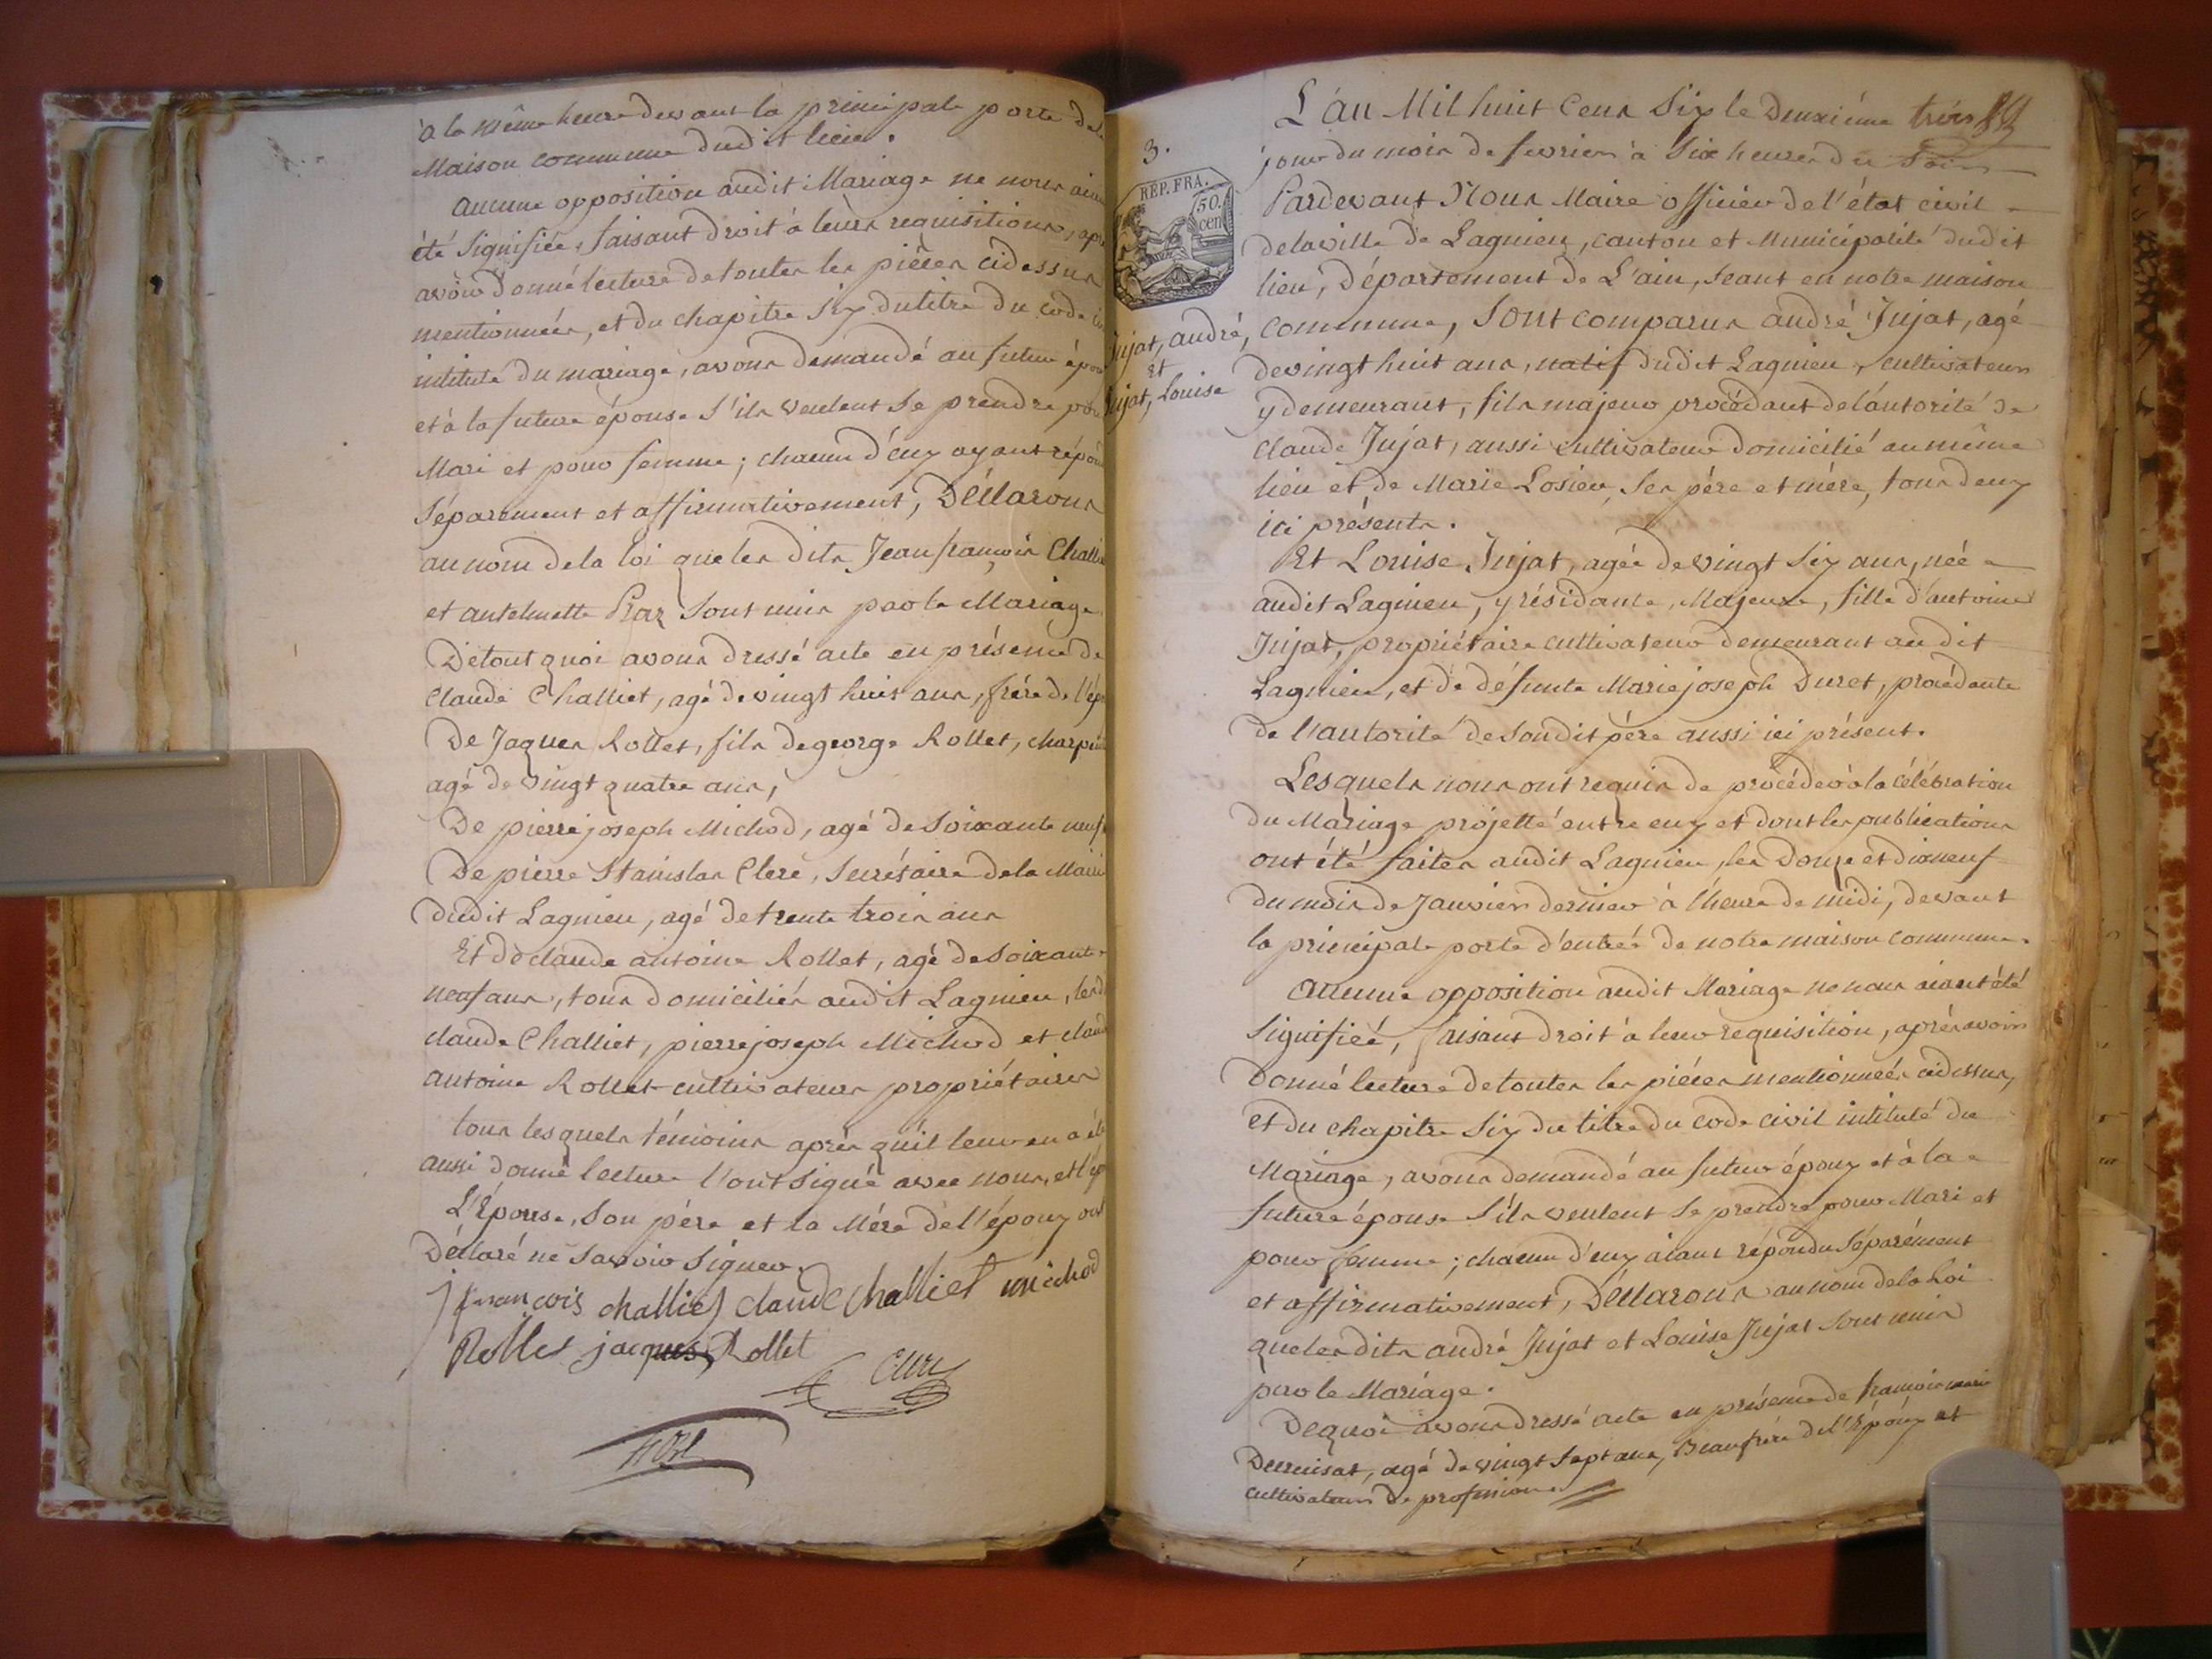 à la même heure devant la principale porte de
Maison commune dudit lieu.
Aucune opposition audit Mariage ne nous
été signifiée, faisant droit à leurs requisitions,
avoir donné lecture de toutes les pièces cidessus
mentionnées, et du chapitre six du titre du code
intitulé du mariage, avons demandé au futur
et à la future épouse s'ils veulent se prendre
Mari et pour femme; chacun d'eux ayant
séparement et affirmativement, Déclarons
au nom de la loi que les dits Jean françois
et antelmette Praz sont unis par le Mariage
De tout quoi avons dressé acte en présence de
Claude Challiet, agé de vingt huit ans, frère de
De Jaques Rollet, fils de george Rollet,
agé de vingt quatre ans,
De pierre joseph Michod, agé de soixante
De pierre Stanislas Clerc, secrétaire de la
dudit Lagnieu, agé de trente trois ans
Et de claude antoine Rollet, agé de soixante
neuf ans, tous domiciliés audit Lagnieu,
claude Challiet, pierre joseph Michod et
antoine Rollet cultivateurs propriétaires
tous lesquels témoins après quil leur en a
aussi donné lecture l'ont signé avec nous,
L'Épouse, son père et la Mère de l'époux ont
Déclaré ne savoir signer.
j françois challiet claude challiet michod
Rollet jacques Rollet
L'an Mil huit cent six le Deuxième trois
3.
jour du mois de fevrier à six heures du soir
REP. FRA.
50.
cen
Pardevant Nous Maire officier de l'état civil
de la ville de Lagnieu, canton et Municipalité dudit
lieu, Département de L'ain, seant en notre maison
Jujat, andré,
et
Jujat, Louise
commune, sont comparus andré Jujat, agé
de vingt huit ans, natif dudit Lagnieu, cultivateur
y demeurant, fils majeur procédant de l'autorité de
Claude Jujat, aussi cultivateur domicilié au même
lieu et de Marie Losieu, ses père et mère, tous deux
ici présents.
Et Louise Jujat, agée de vingt six ans, née
audit Lagnieu, y résidante, Majeure, fille d'antoine
Jujat, propriétaire cultivateur demeurant audit
Lagnieu, et de défunte Marie joseph Duret, procédante
de l'autorité de sondit père aussi ici présent.
Lesquels nous ont requis de procéder à la célébration
du Mariage projetté entre eux et dont les publications
ont été faites audit Lagnieu, les Douze et dixneuf
du mois de janvier dernier à l'heure de midi, devant
la principale porte d'entrée de notre maison commune.
Aucune opposition audit Mariage ne nous aiant été
signifiée, faisant droit à leur requisition, après avoir
donné lecture de toutes les pièces mentionnées cidessus,
et du chapitre six du titre du code civil intitulé du
Mariage, avons demandé au futur époux et à la
future épouse s'ils veulent se prendre pour Mari et
pour femme; chacun d'eux aiant répondu séparément
et affirmativement, Déclarons au nom de la Loi
que les dits andré Jujat et Louise Jujat sont unis
par le Mariage.
De quoi avons dressé acte en présence de françois marie
agé de vingt sept ans, Beaufrère de l'Époux et
cultivateur de profession